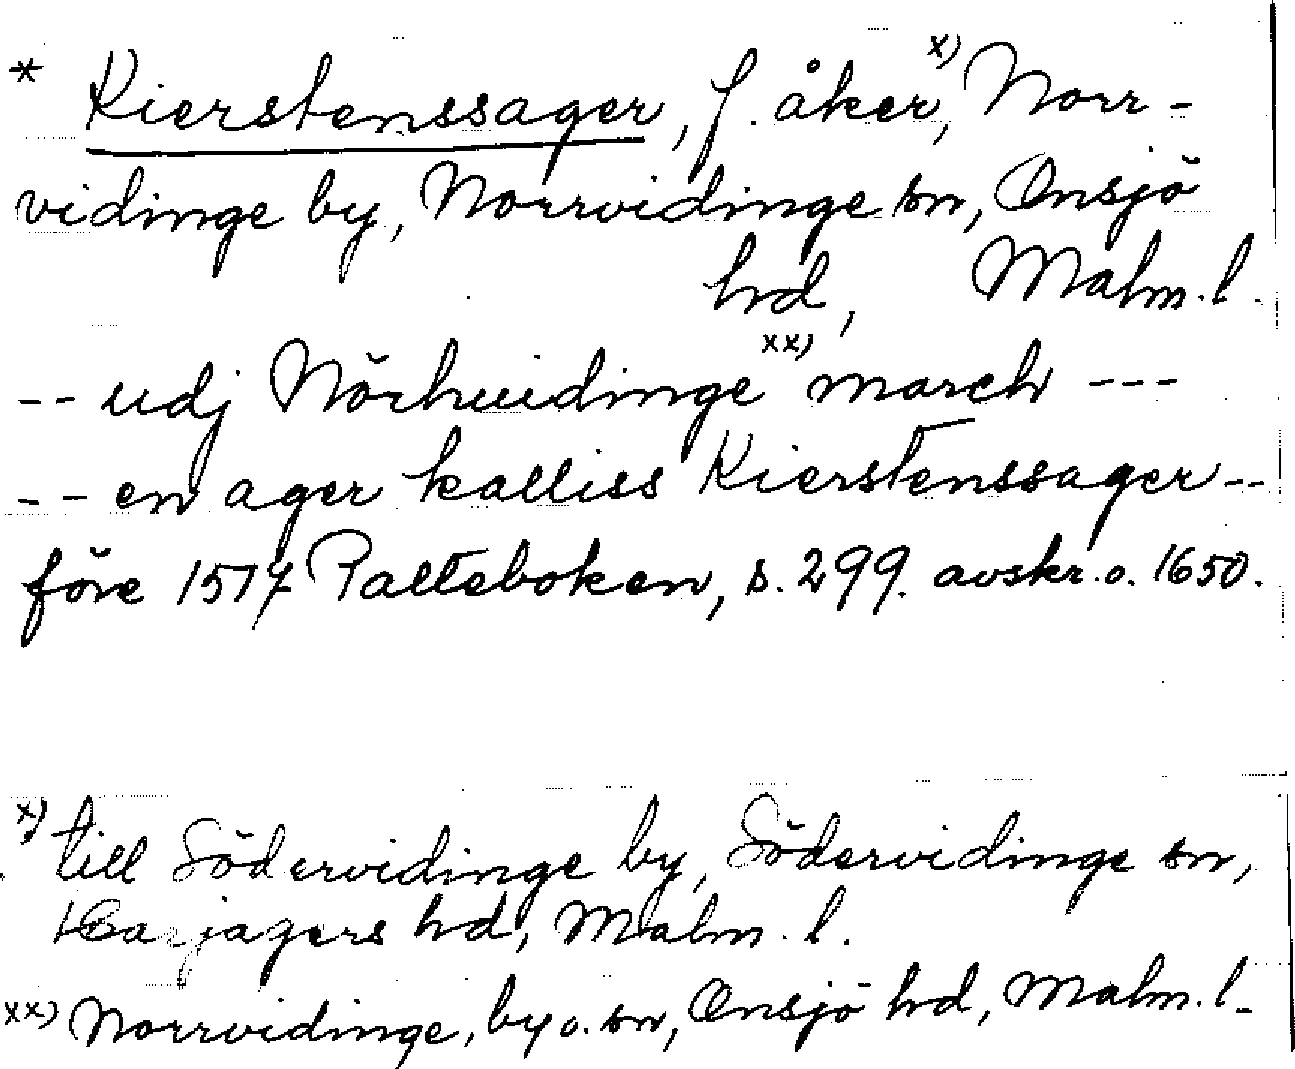 * Kierstenssager, f. åker,ˣ⁾ Norr-
vidinge by, Norrvidinge sn, Onsjö
hrd, Malm. l.
-- udj Nörhuidinge ˣˣ⁾ march ---
-- en ager kalliss Kierstenssager --
före 1517 Palteboken, s. 299. avskr. o. 1650.
x) till Södervidinge by, Södervidinge sn,
Harjagers hd, Malm. l.
xx) Norrvidinge, by o. sn, Onsjö hrd, Malm. l.